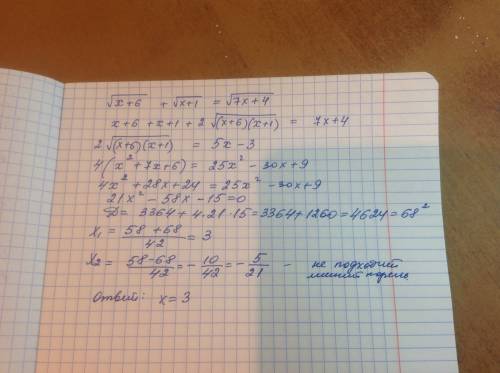 √(x+6) + √(x+1) = √(7x+4)
x+6+x+1+2√((x+6)(x+1)) = 7x+4
2√((x+6)(x+1)) = 5x-3
4(x²+7x+6) = 25x²-30x+9
4x²+28x+24 = 25x²-30x+9
21x²-58x-15=0
D= 3364+4·21·15=3364+1260=4624=68²
x₁ = (58+68)/42 = 3
x₂ = (58-68)/42 = -10/42 = -5/21 - не подходит
лишний корень
Ответ: x=3